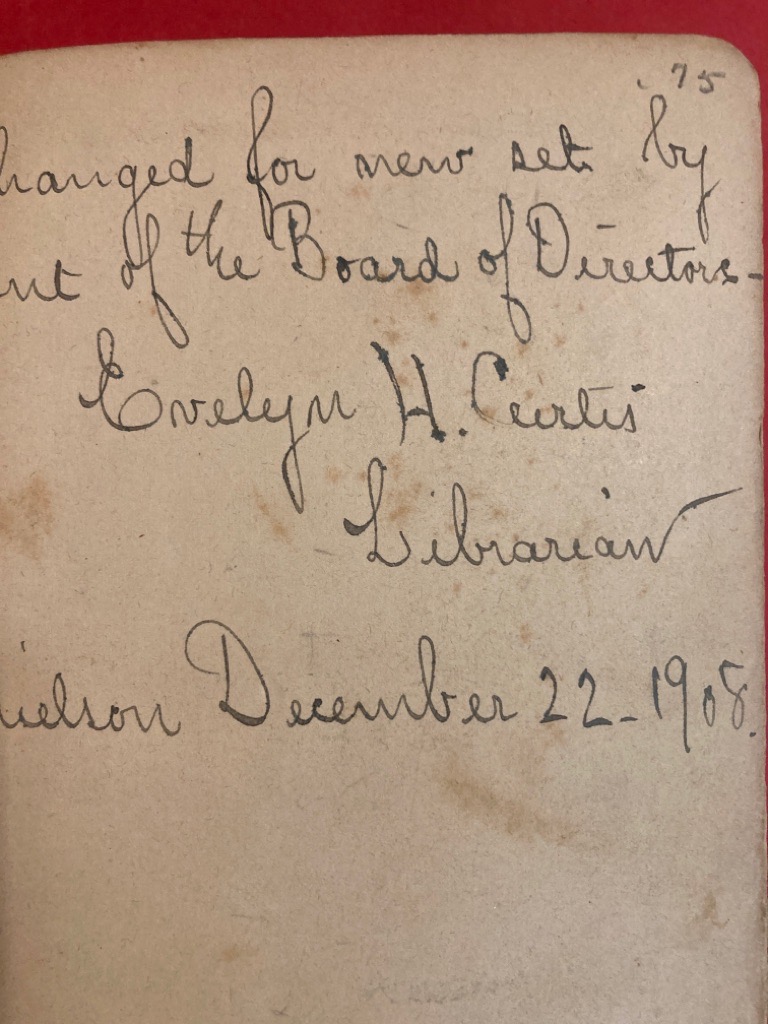 .75
hanged for new set by
nt of the Board of Directors-
Evelyn H. Curtis
Librarian
ielson December 22-1908.